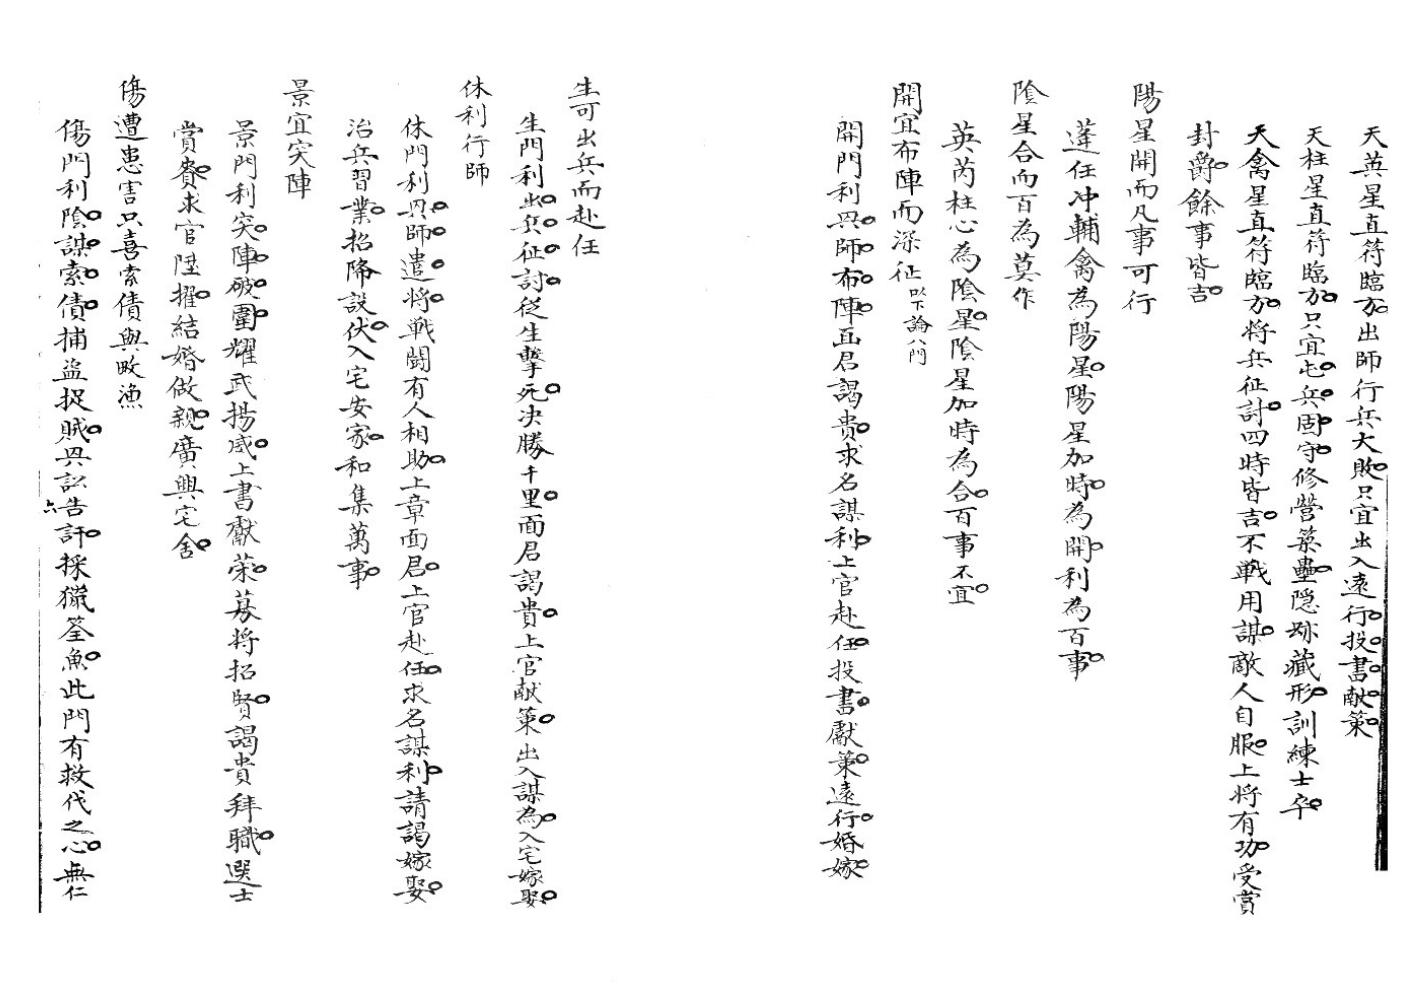 天英星直符臨方。出師行兵大敗。只宜出入遠行。投書。献策。
天柱星直符臨方。只宜屯兵。固守。修營築壘。隱跡藏形。訓練士卒。
天禽星直符臨方。將兵征討。四時皆吉。不戦用謀。敵人自服。上將有功。受賞
封爵。餘事皆吉。
陽星開而凡事可行
蓬任冲輔禽為陽星。陽星加時。為開。利為百事。
陰星合而百為莫作
英芮柱心為陰星。陰星加時為合。百事不宜。
開宜布陣而深征 以下論八門
開門利興。師。布。陣。面君謁貴。求名謀利。上官赴任。投書。獻策。遠行。婚嫁。
生可出兵而赴任
生門利出。兵。征。討。從生擊死。決勝千里。面君謁貴。上官献策。出入謀為。入宅嫁娶。
休利行師
休門利興。師。遣。將。戦鬪有人相助。上章面君。上官赴任。求名謀利。請謁嫁娶。
治兵習業。招降設伏。入宅安家。和集萬事。
景宜突陣
景門利突。陣。破。圍。耀武揚威。上書獻策。募將招賢。謁貴拜職。選士
賞賚。求官陞擢。結婚做親。廣興宅舍。
傷遭患害只喜索債與畋漁
傷門利陰。謀。索。債。捕盜捉賊。興訟告訐。採獵筌魚。此門有救代之心。無仁
六